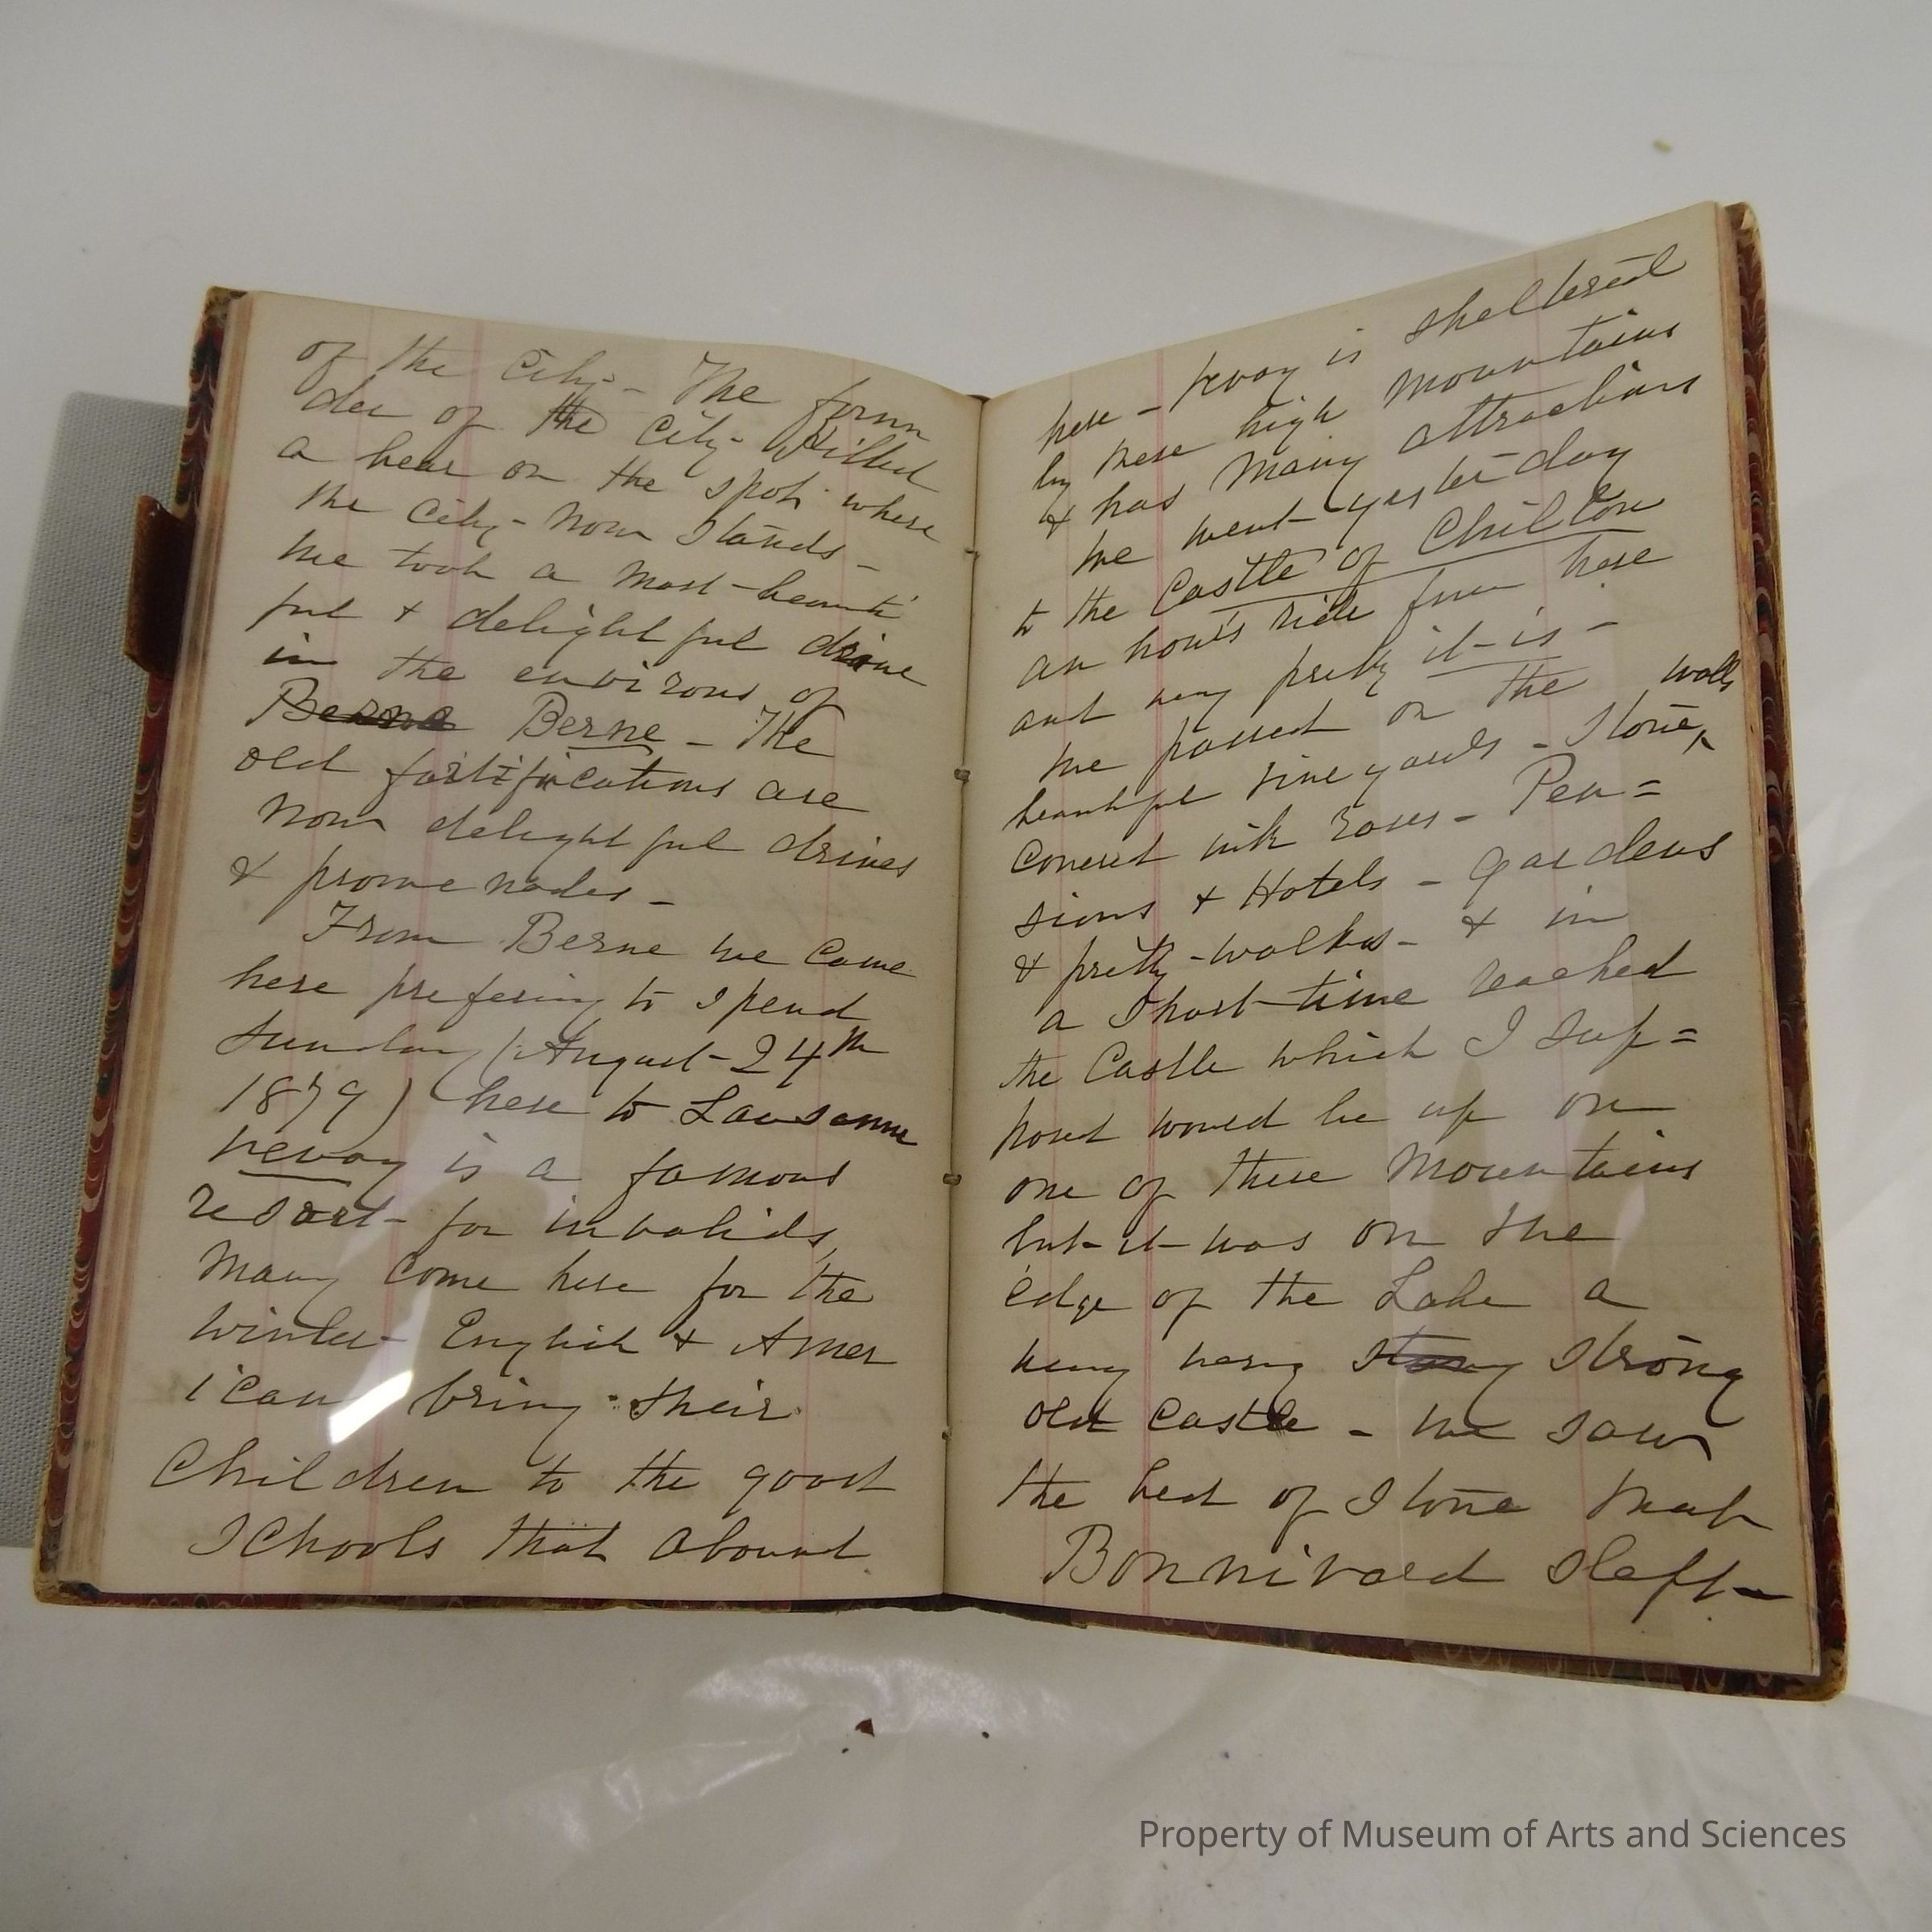 of the City - The foun
der of the City - killed
a bear on the spot where
the City - now stands -
we took a most - beauti
ful & delightful drive
in the environs of
Berne Berne - The
old fortifications are
now delightful drives
& promenades -
From Berne we came
here prefering to spend
Sunday (August - 24th
1879) here to Lausanne
Vevay is a famous
resort - for invalids,
Many come here for the
winter - English & Amer
ican bring their
Children to the good
Schools that abound
here - Vevay is sheltered
by these high mountains
& has many attractions
we went yesterday
to the Castle of Chillon
an hour's ride from here
and very pretty it - is -
we passed on the
walls
beautiful vineyards - Stone ^
covered with roses - Pen=
sions & Hotels - gardens
& pretty - walks - & in
a short - time reached
the Castle which I sup=
posed would be up on
one of these mountains
but - it - was on the
edge of the Lake a
very very strong
old castle - we saw
the bed of Stone that
Bonnivard slept -
Property of Museum of Arts and Sciences